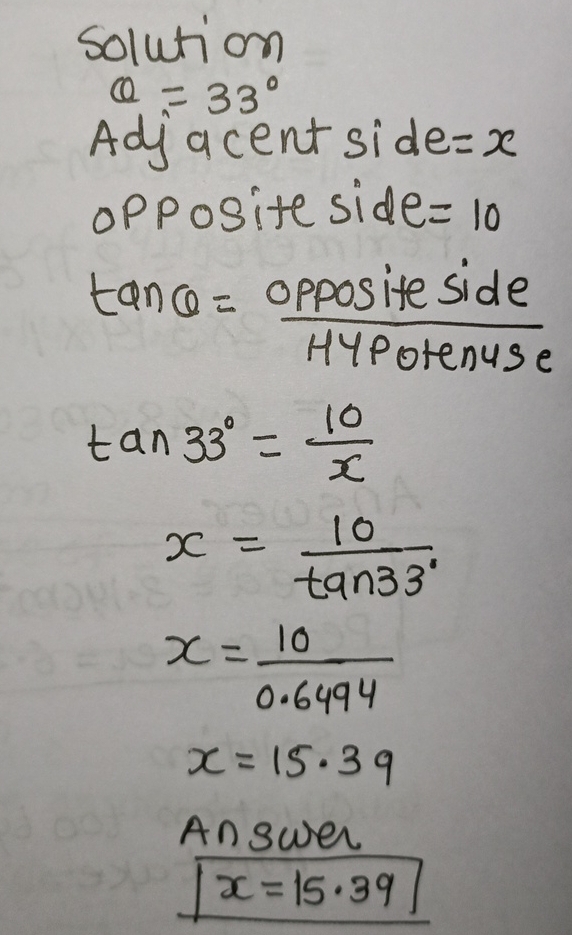 Solution
θ = 33°
Adjacent side = x
opposite side = 10
tan θ = opposite side / Hypotenuse
tan 33° = 10 / x
x = 10 / tan 33°
x = 10 / 0.6494
x = 15.39
Answer
x = 15.39